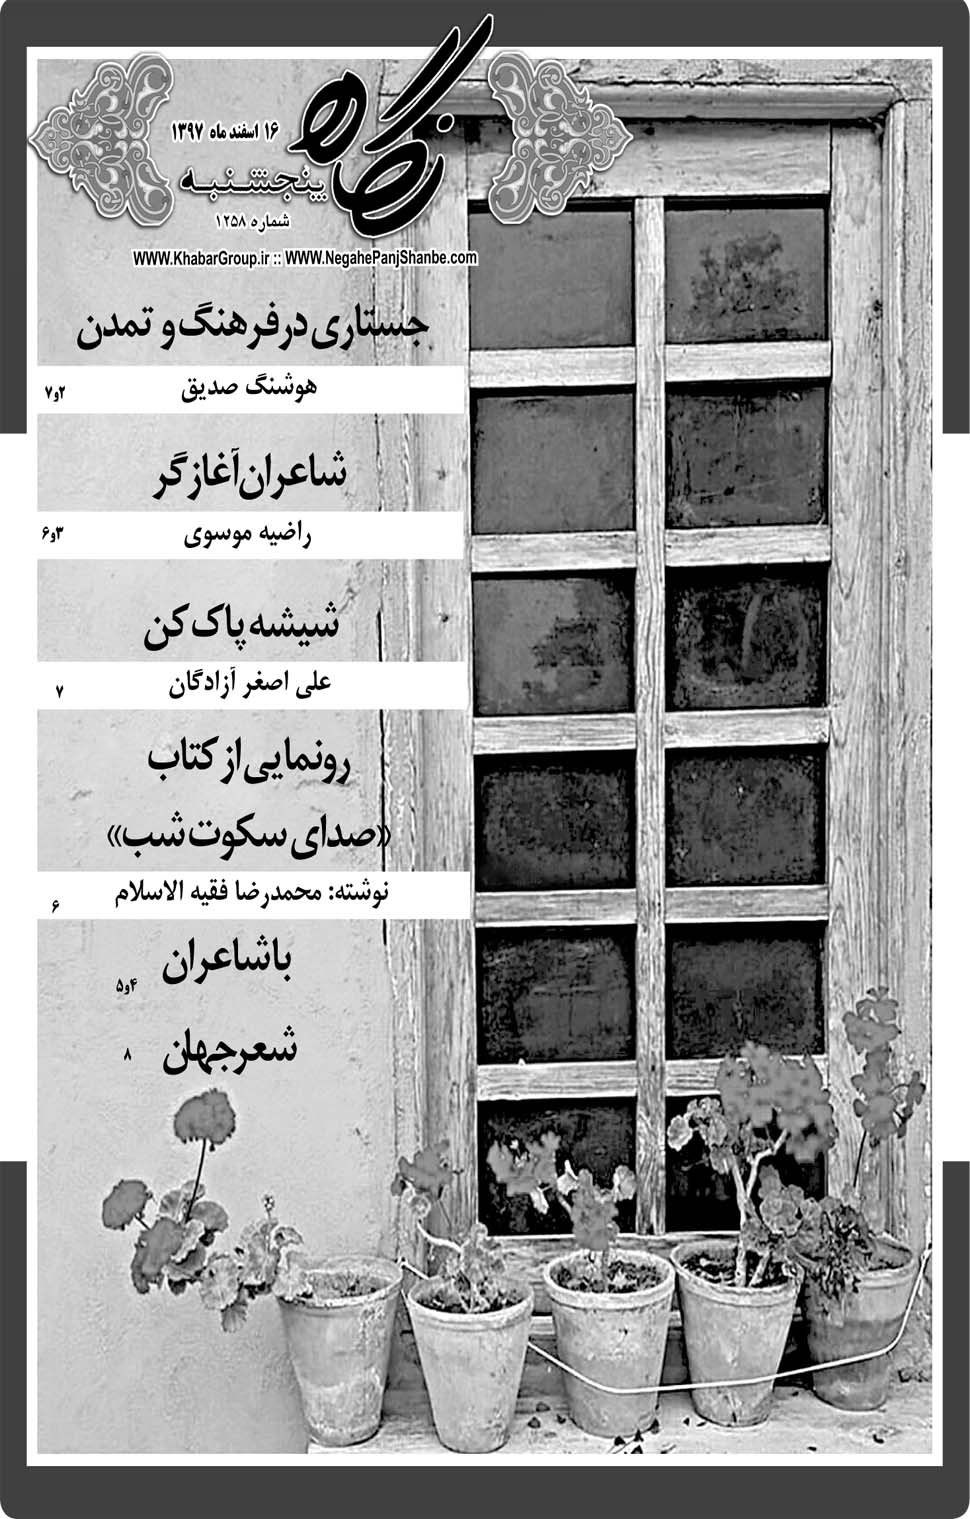 نگاه
۱۶ اسفند ماه ۱۳۹۷
پنجشنبه
شماره ۱۲۵۸
WWW.KhabarGroup.ir :: WWW.NegahePanjShanbe.com
جستاری در فرهنگ و تمدن
هوشنگ صدیق ۲و۷
شاعران آغازگر
راضیه موسوی ۳و۶
شیشه پاک کن
علی اصغر آزادگان ۷
رونمایی از کتاب
«صدای سکوت شب»
نوشته: محمدرضا فقیه الاسلام ۶
با شاعران ۴و۵
شعر جهان ۸